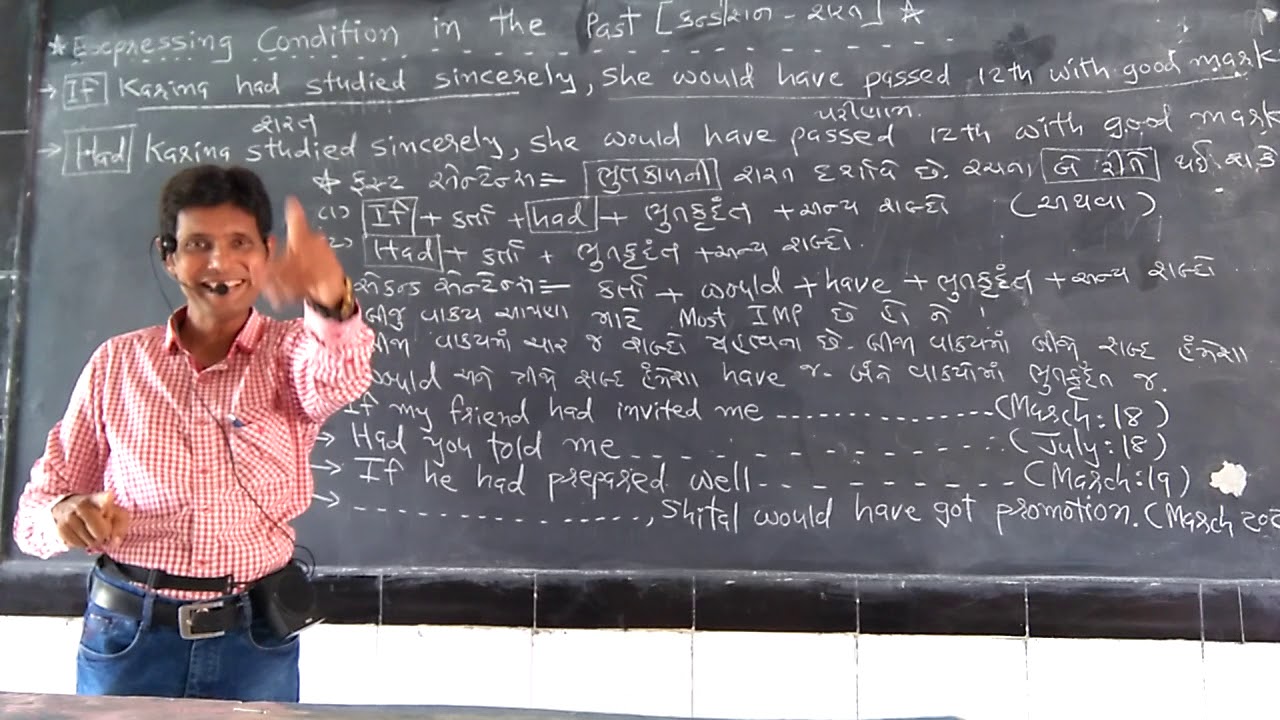 ★ Expressing Condition in the Past [કન્ડીશન - શરત] ★
→ If Karina had studied sincerely, she would have passed 12th with good mark
શરત પરીણામ.
→ Had Karina studied sincerely, she would have passed 12th with good mark
★ ફસ્ટ સેન્ટેન્સ = ભુતકાળની શરત દર્શાવે છે. રચના બે રીતે થઈ શકે
(1) If + કર્તા + had + ભુતકૃદંત + અન્ય શબ્દો (અથવા)
Had + કર્તા + ભુતકૃદંત + અન્ય શબ્દો.
સેકન્ડ સેન્ટેન્સ = કર્તા + would + have + ભુતકૃદંત + અન્ય શબ્દો
બીજુ વાક્ય આપણા માટે Most IMP છે હો ને !
બીજા વાક્યમાં ચાર જ શબ્દો મહત્વના છે. બીજા વાક્યમાં બીજો શબ્દ હંમેશા
would અને ત્રીજો શબ્દ હંમેશા have જ. બંને વાક્યોમાં ભુતકૃદંત જ.
If my friend had invited me --------------- (March:18)
→ Had you told me --------------- (July:18)
→ If he had prepared well ----------- (March:19)
→ ---------------, Shital would have got promotion. (March